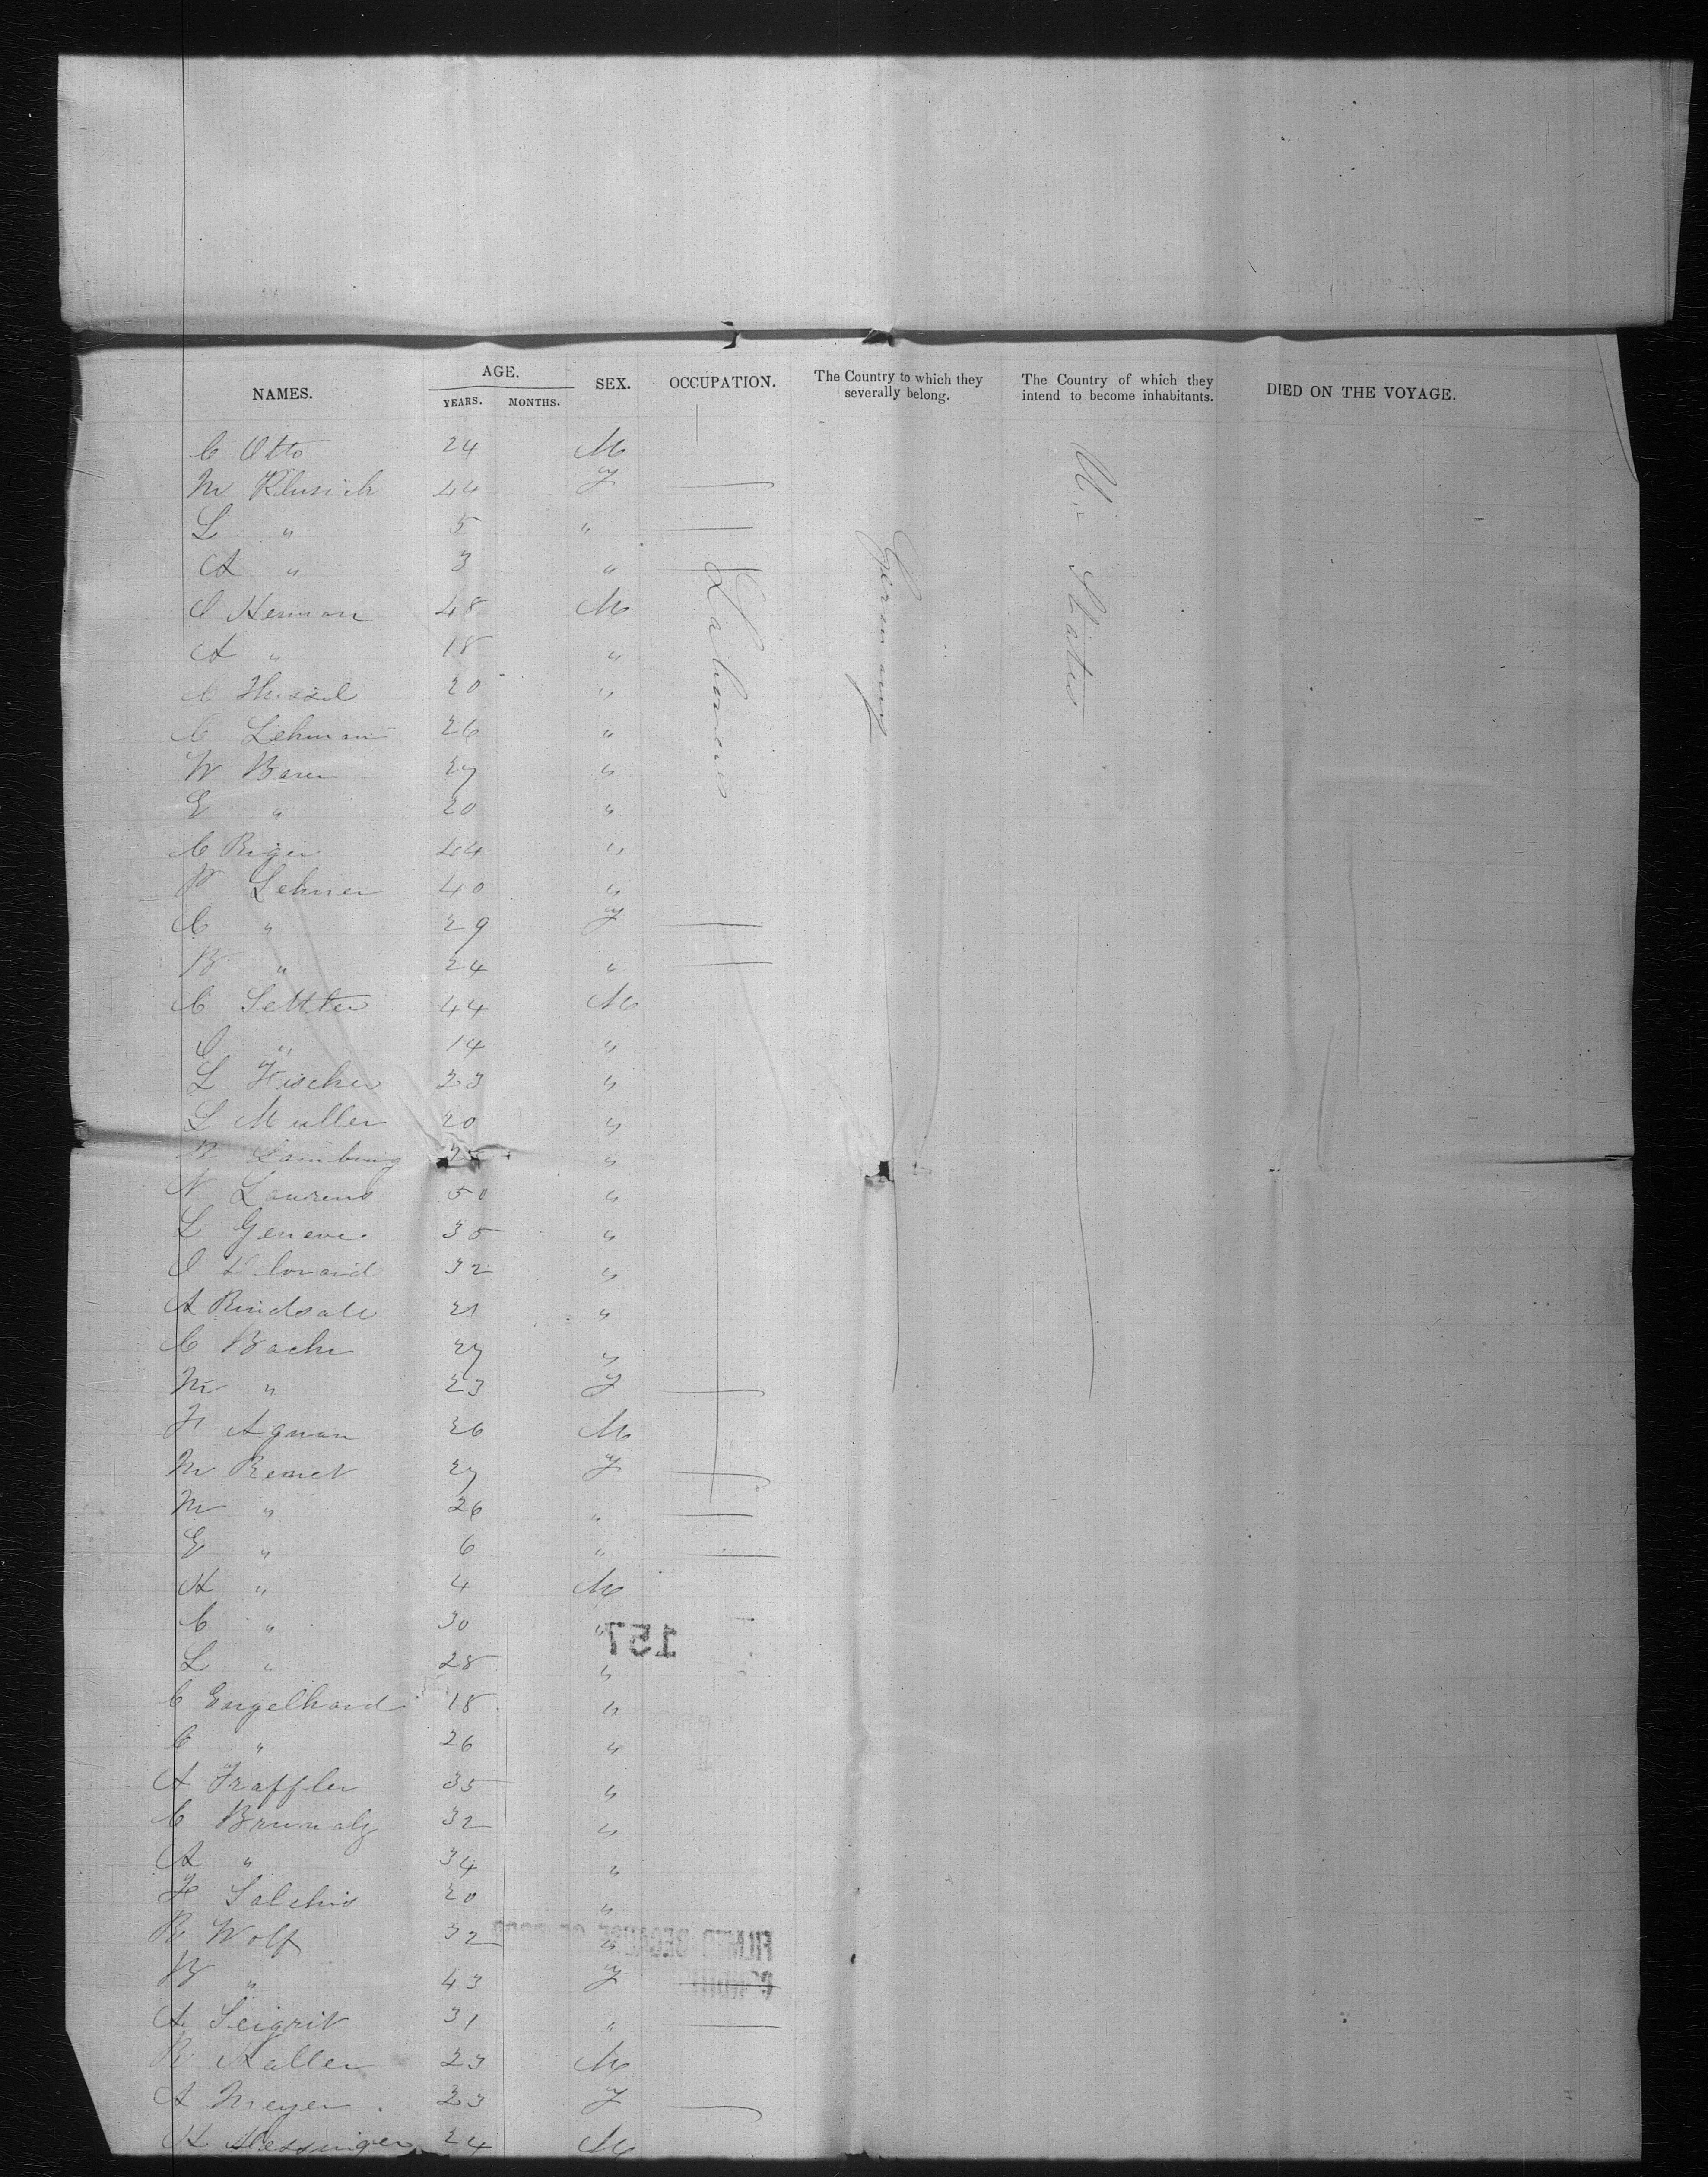 NAMES. AGE. SEX. OCCUPATION. The Country to which they severally belong. The Country of which they intend to become inhabitants. DIED ON THE VOYAGE.
YEARS. MONTHS.
Labourers
Germany
U. States
C Otto 24 M
M 44 F
L " 5 "
A " 3 "
Herman 48 M
A " 18 "
C 20 "
C Lehman 26 "
W Baren 27 "
E " 20 "
C Riger 44 "
P Lehner 40 "
C " 29 F
B " 24 "
C Settler 44 M
" 14 "
L Fischer 23 "
L Muller 20 "
"
N Laurens 50 "
L Geneve 35 "
32 "
A Rindsale 21 "
C Bache 27 "
M " 23 F
F Agnan 26 M
M Remet 27 F
M " 26 "
E " 6 "
H " 4 M
C " 30 "
L " 28 "
C Engelhard 18 "
C " 26 "
A Fraffler 35 "
C 32 "
A " 34 "
F Salchis 20 "
R Wolf 32 "
B " 43 F
A Seigrit 31 "
R Haller 23 M
A Meyer 23 F
H Massinger 24 M
157
FILMED BECAUSE OF POOR